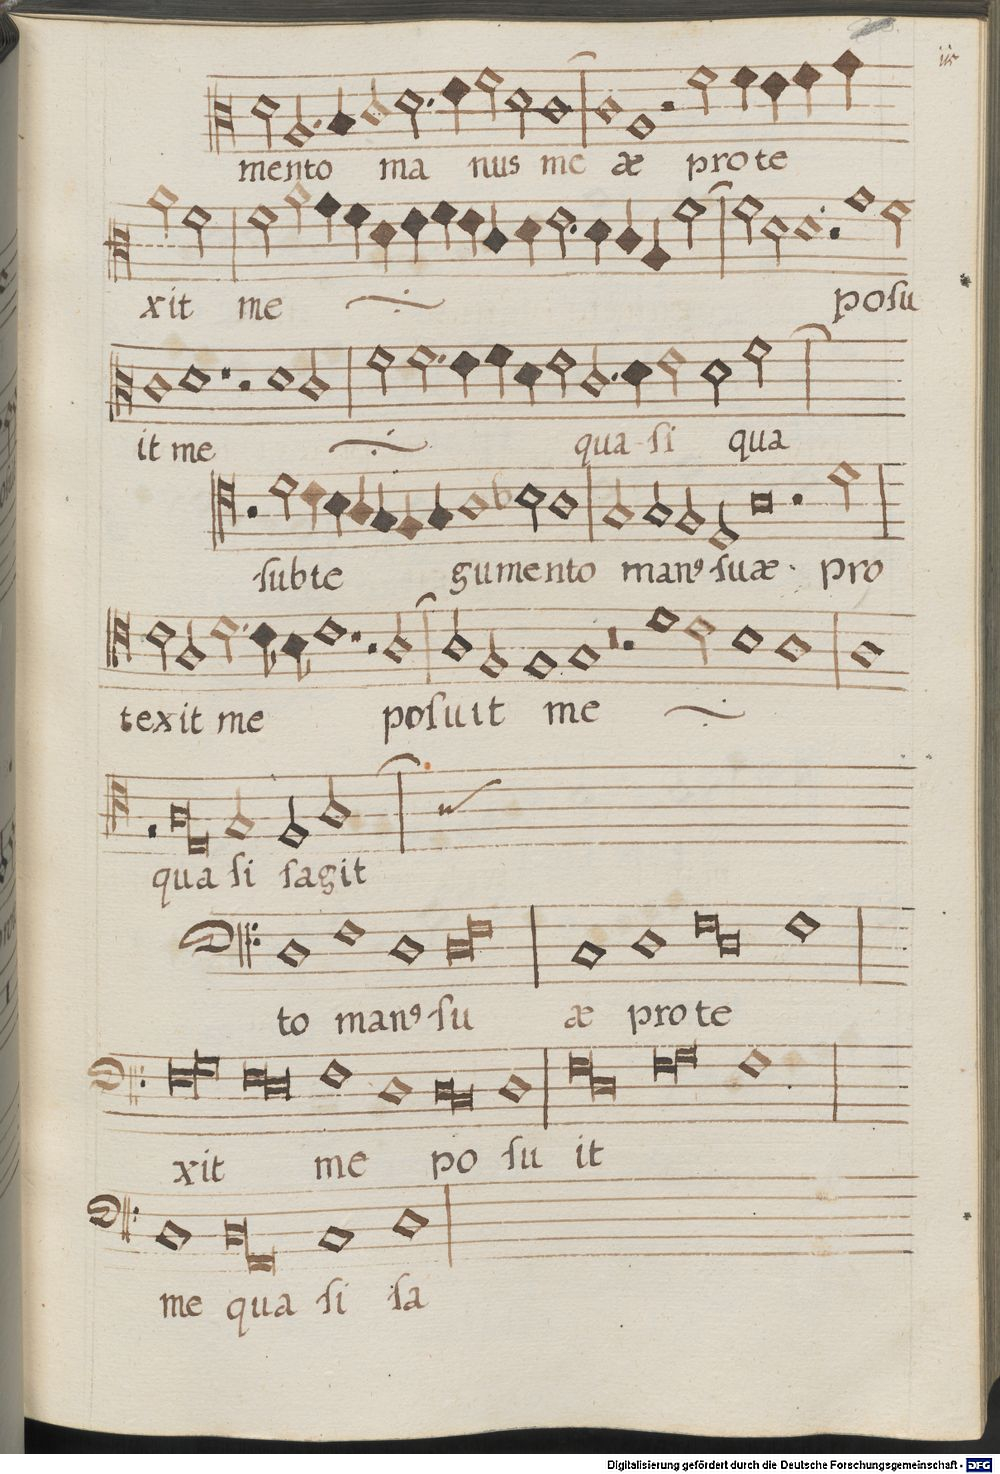 iii
mento ma nus me æ prote
xit me posu
it me qua si qua
subte gumento man9 suæ · pro
texit me posuit me
qua si sagit
to man9 su æ prote
xit me po su it
me qua si sa
Digitalisierung gefördert durch die Deutsche Forschungsgemeinschaft - DFG